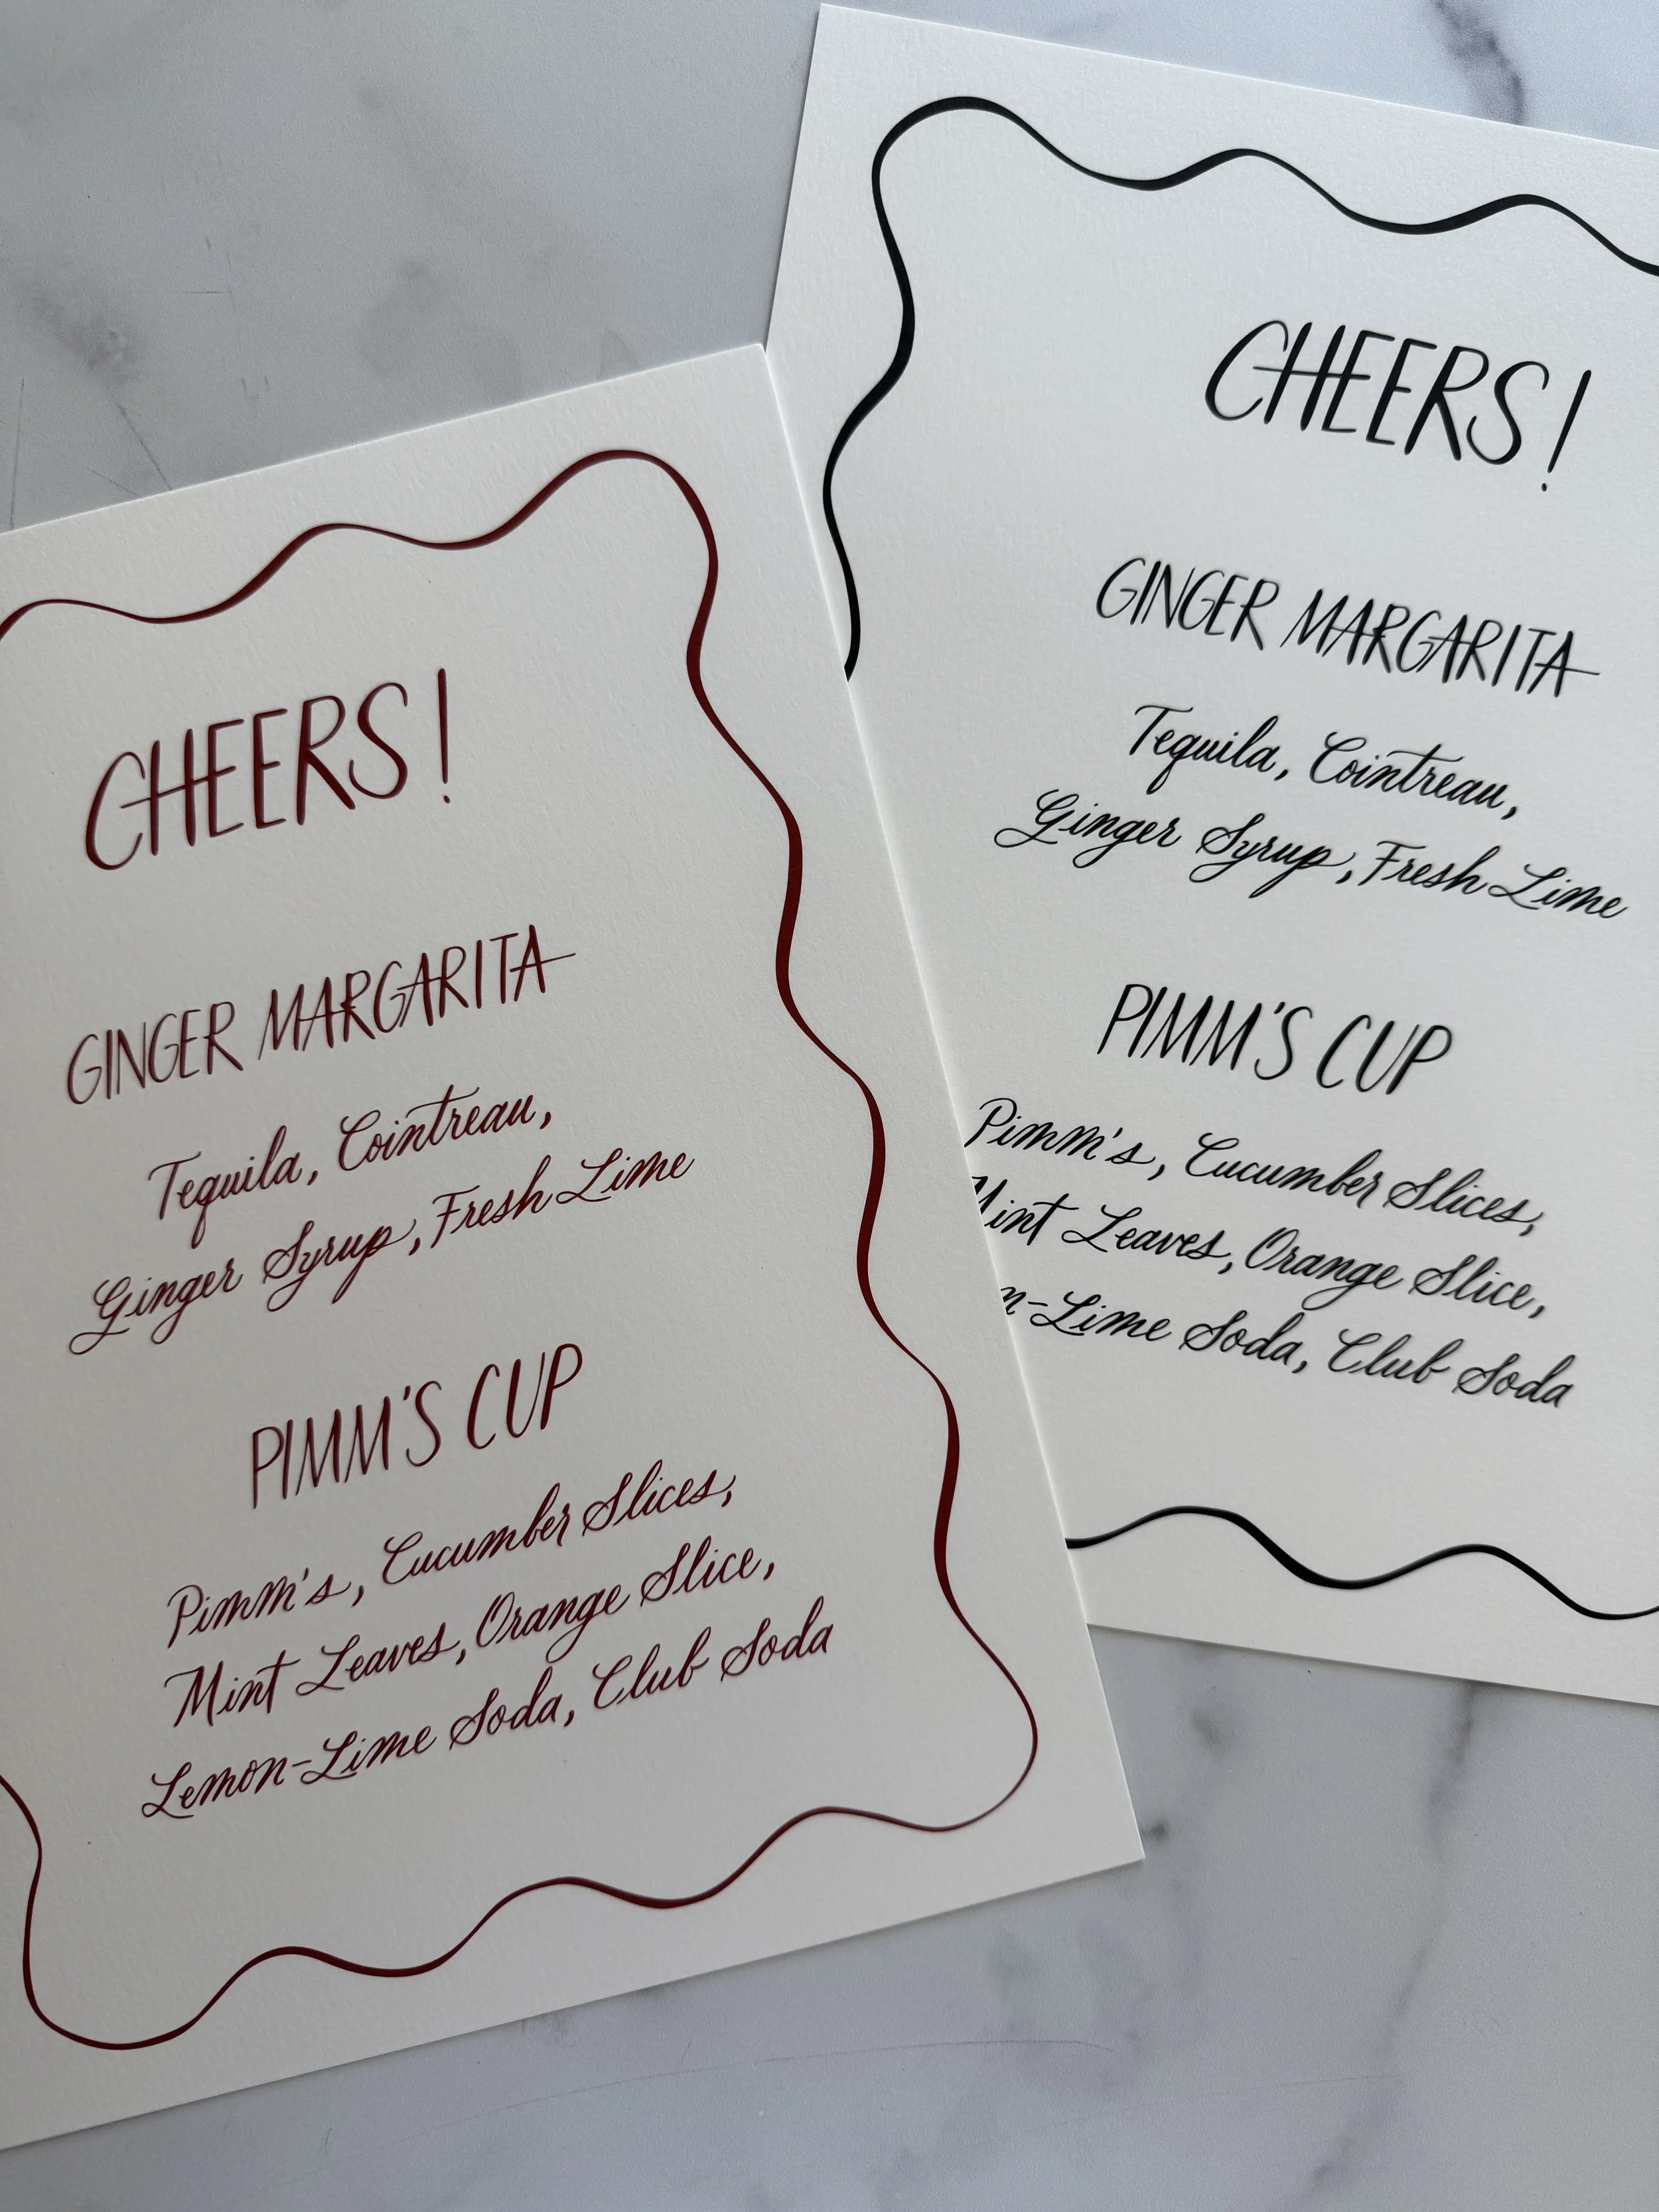 CHEERS!
GINGER MARGARITA
Tequila, Cointreau,
Ginger Syrup, Fresh Lime
PIMM'S CUP
Pimm's, Cucumber Slices,
Mint Leaves, Orange Slice,
Lemon-Lime Soda, Club Soda
CHEERS!
GINGER MARGARITA
Tequila, Cointreau,
Ginger Syrup, Fresh Lime
PIMM'S CUP
Pimm's, Cucumber Slices,
Mint Leaves, Orange Slice,
n-Lime Soda, Club Soda